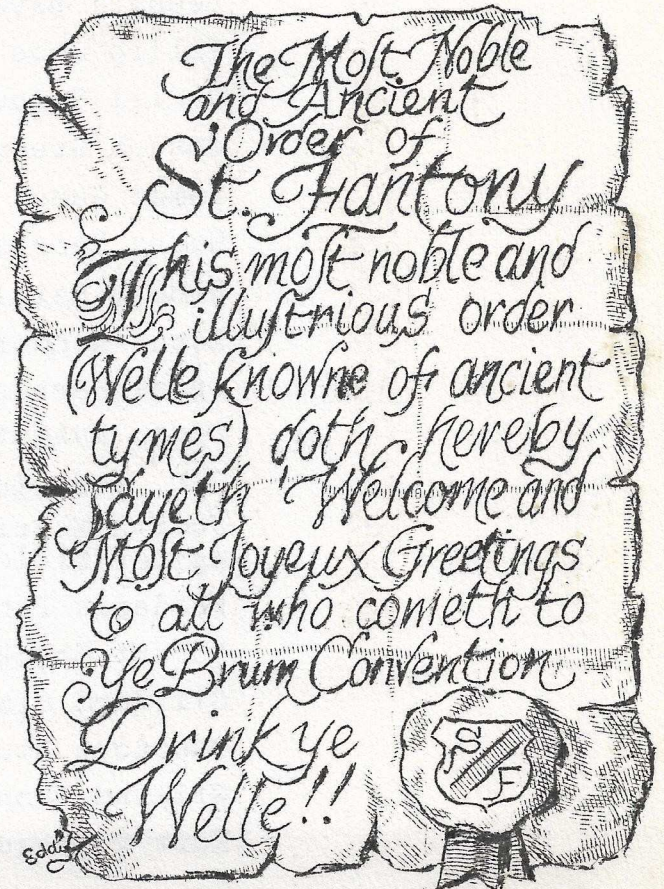 The Moſt Noble
and Ancient
Order of
St. Fantony
This moſt noble and
illuſtrious order
(Welle knowne of ancient
tymes) doth hereby
Sayeth 'Welcome and
Moſt Joyeux Greetings
to all who cometh to
Ye Brum Convention
Drink ye
Welle!!
S
F
Eddie